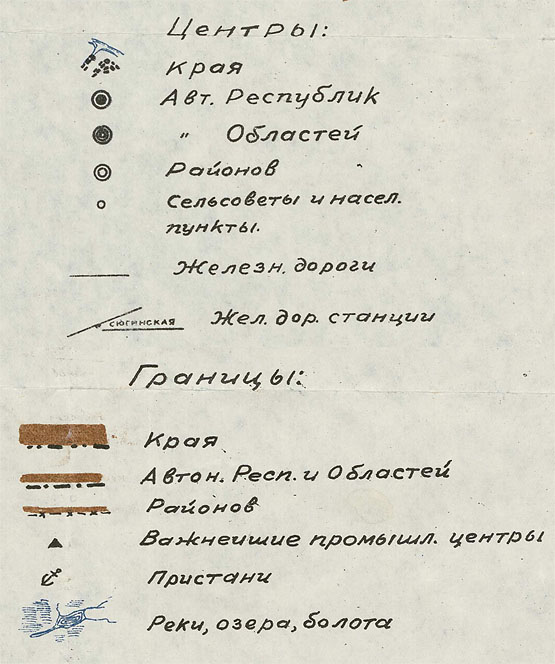 Центры:
Края
Авт. Республик
„ Областей
Районов
Сельсоветы и насел.
пункты.
Железн. дороги
СЮГИНСКАЯ Жел. дор. станции
Границы:
Края
Автон. Респ. и Областей
Районов
Важнейшие промышл. центры
Пристани
Реки, озера, болота